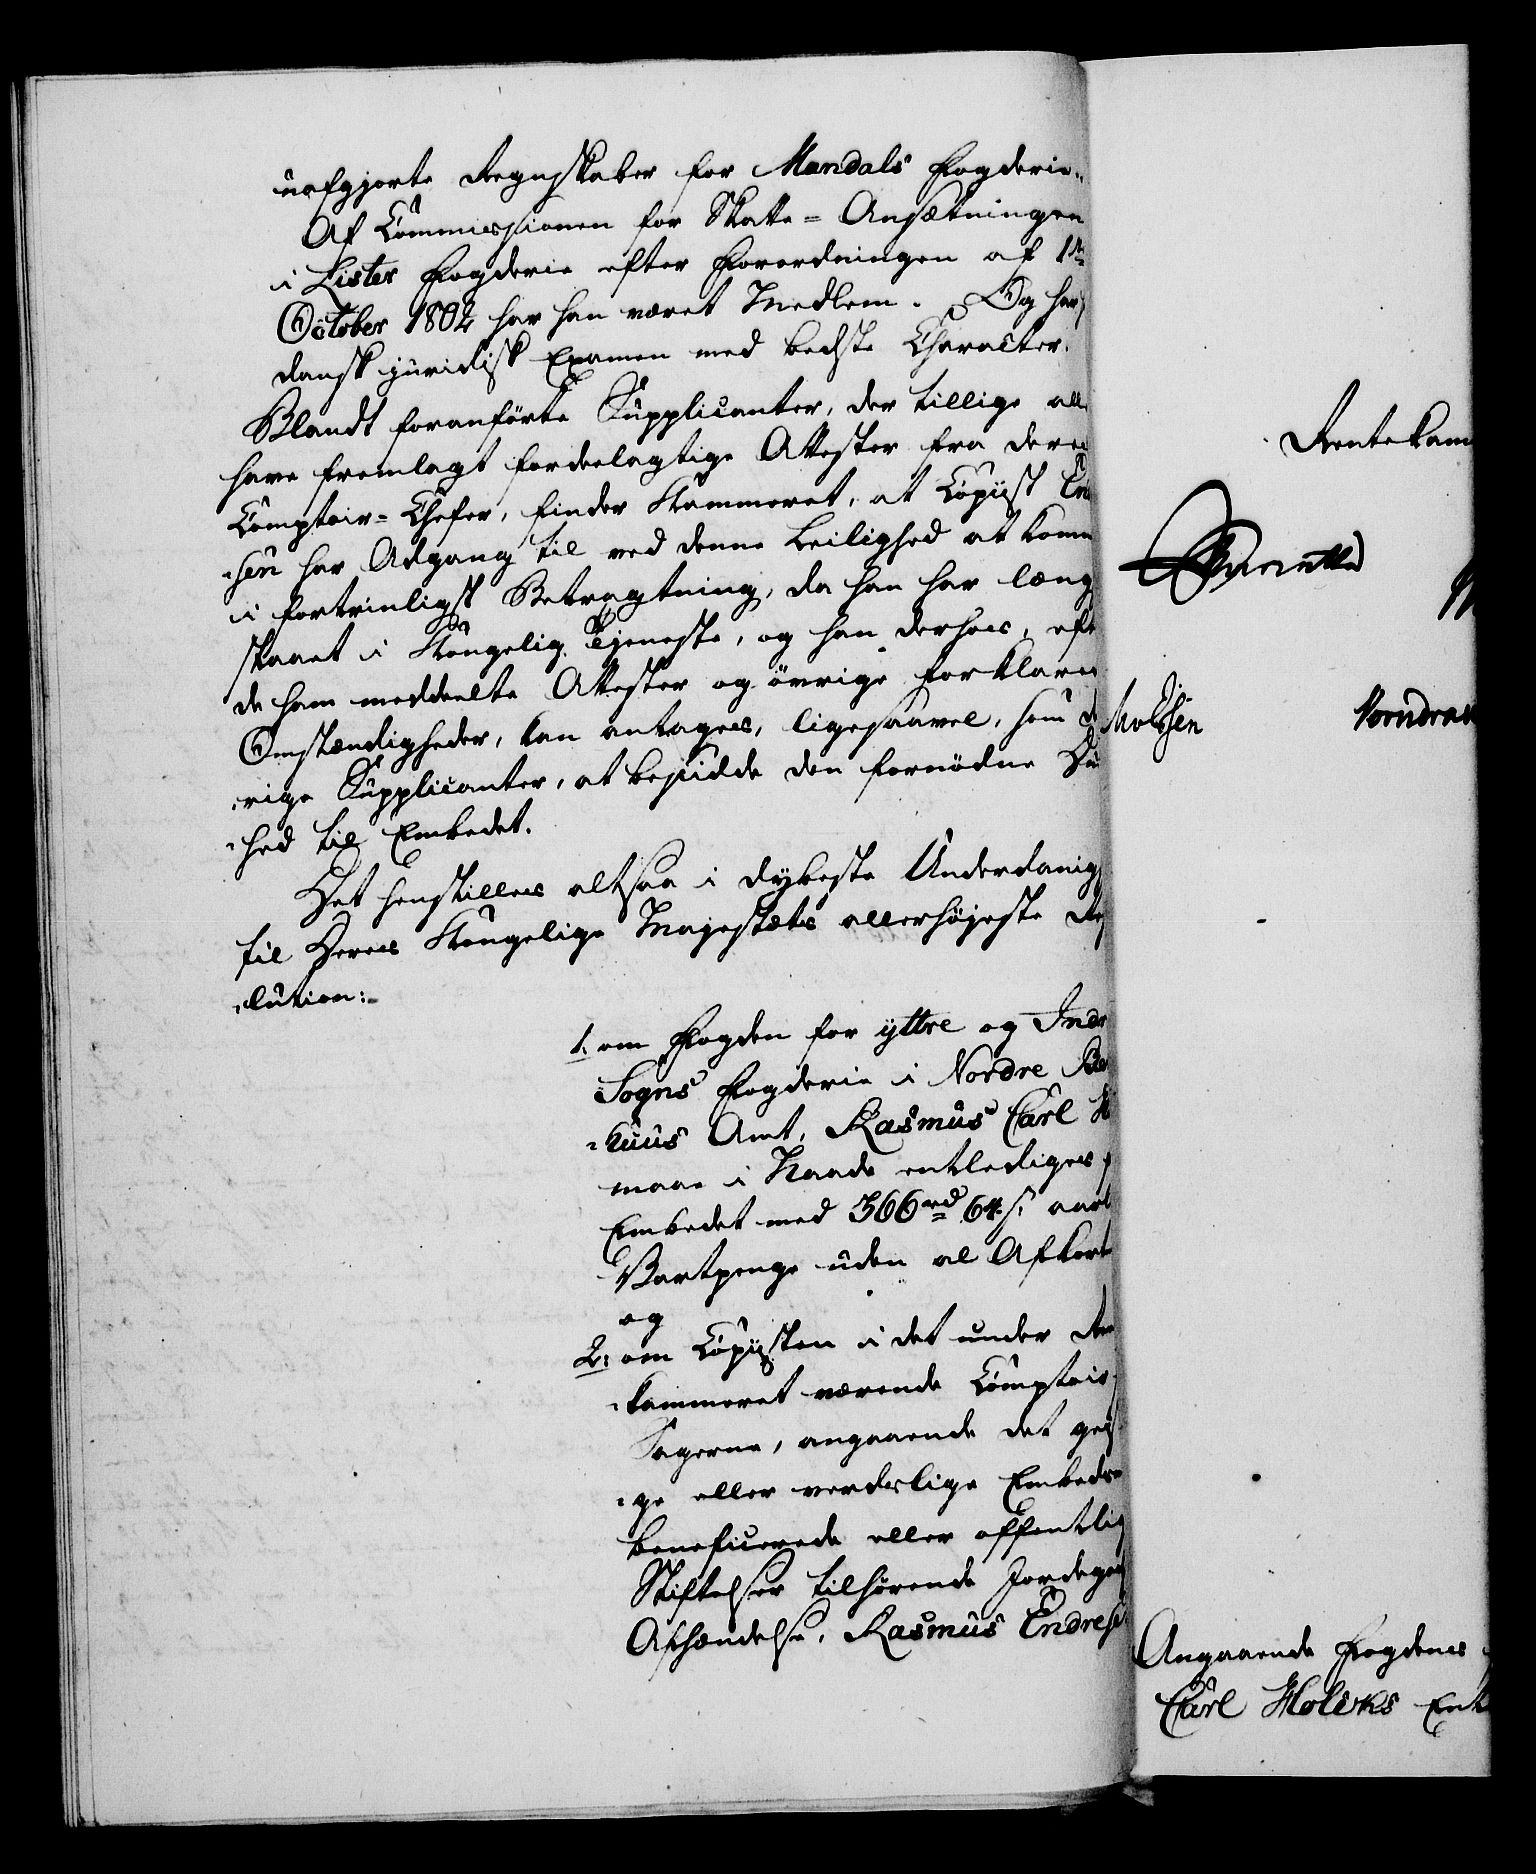 uafgjorte Regnskaber for Mandals Fogderie.
Af Commissionen for Skatte-Ansætningen
i Lister Fogderie efter Forordningen af 1ste
October 1802 har han været Medlem. Og har
dansk juridisk Examen med bedste Character.
Blandt foranførte Supplicanter, der tillige alle
have fremlagt fordeelagtige Attester fra deres
Comptoir-Chefer, finder Kammeret, at Copiist En
sen har Adgang til ved denne Leilighed at komm
i fortrinligst Betragtning, da han har læng
staaet i Kongelig Tjeneste, og han derhos, eft
de ham meddeelte Attester og øvrige forklare
Omstændigheder, kan antages, ligesaavel, som d
rige Supplicanter, at besidde den fornødne Du
hed til Embedet.
Det henstilles altsaa i dybeste Underdanig
til Deres Kongelige Majestæts allerhøjeste Res
lution:
1. om Fogden for yttre og Indr
Sogns Fogderie i Nordre Be
huus Amt, Rasmus Carl H
maae i Naade entlediges f
Embedet med 366 rd 64 s. aarl
Vartpenge uden al Afkort
og
2. om Copiisten i det under Ren
kammeret værende Comptoir f
Sagerne, angaaende det gejs
ge eller verdslige Embeds
beneficerede eller offentlig
Stiftelser tilhørende Jordegod
Afhændelse, Rasmus Endres
Rentekam
Molzsen
Angaaende Fogdens
Carl Holcks Ent